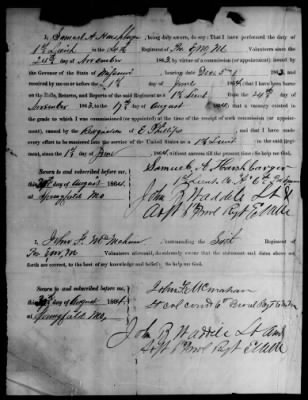 I, Samuel A Harshbarger, being duly sworn, do say: That I performed the duty
of 1st Lieut in the 6th Regiment of Pro E M M, Volunteers since the
24th day of November 1863, by virtue of a commission (or appointment) from the
Governor of the State of Missouri, bearing date Dec 5th, 1863, and
received by me on or before the 1st day of June 1864, that I have been borne
on the Rolls, Returns, and Reports of said Regiment as a 1st Lieut from the 24th day of
November 1863, to 17th day of August 1864, that a vacancy existed in
the grade to which I was so commissioned (or appointed) at the time of the receipt of such commission (or appointment),
caused by the Resignation of E Phelps, and that I have made
every effort to be mustered into the service of the United States as a 1st Lieut
since the 1st of June, without success till the present time: So help me God.
Samuel A Harshbarger
Sworn to and subscribed before me,
day of August 1864,
at Springfield Mo
John R Waddill Lt &
Adjt 6th Provl Regt E M M
I, John F McMahan, commanding the Sixth Regiment of
Pro E M M Volunteers aforesaid, do solemnly swear that the statement and dates above set
forth are correct, to the best of my knowledge and belief: So help me God.
John F McMahan
Lt Col comd 6th Provl Regt
Sworn to and subscribed before me, this
day of August 1864,
at Springfield Mo
John R Waddill Lt and
Adjt 6th Provl Regt E M M